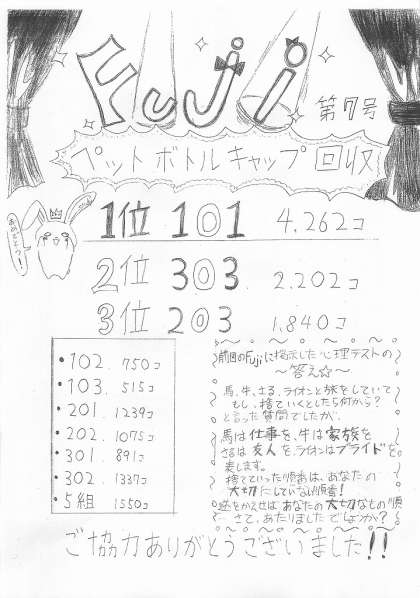 Fuji
第7号
ペットボトルキャップ回収
1位 101 4,262コ
2位 303 2,202コ
3位 203 1,840コ
・102. 750コ
・103. 515コ
・201. 1239コ
・202. 1075コ
・301. 891コ
・302. 1337コ
・5組 1550コ
前回のFujiに掲示した心理テストの
〜答え☆〜
馬、牛、さる、ライオンと旅をしていて
もし、捨てていくとしたら何から?
と言った質問でしたが、
馬は仕事を、牛は家族を
さるは友人を、ライオンはプライドを
表します。
捨てていった順番は、あなたの
大切にしていない順番!
逆をかえせば、あなたの大切なもの順
さて、あたりましたでしょうか?
ご協力ありがとうございました!!